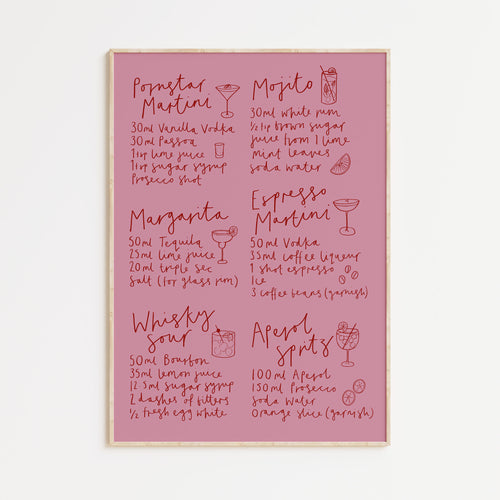 Pornstar
Martini
30ml Vanilla Vodka
30ml Passoa
1tsp lime juice
1tsp sugar syrup
Prosecco shot
Mojito
30ml white rum
1/2 tsp brown sugar
juice from 1 lime
mint leaves
soda water
Margarita
50ml Tequila
25ml lime juice
20ml triple sec
Salt (for glass rim)
Espresso
Martini
50ml Vodka
35ml coffee liqueur
1 shot espresso
Ice
3 coffee beans (garnish)
Whisky
sour
50ml Bourbon
35ml lemon juice
12.5ml sugar syrup
2 dashes of bitters
1/2 fresh egg white
Aperol
sprits
100ml Aperol
150ml Prosecco
Soda Water
Orange slice (garnish)